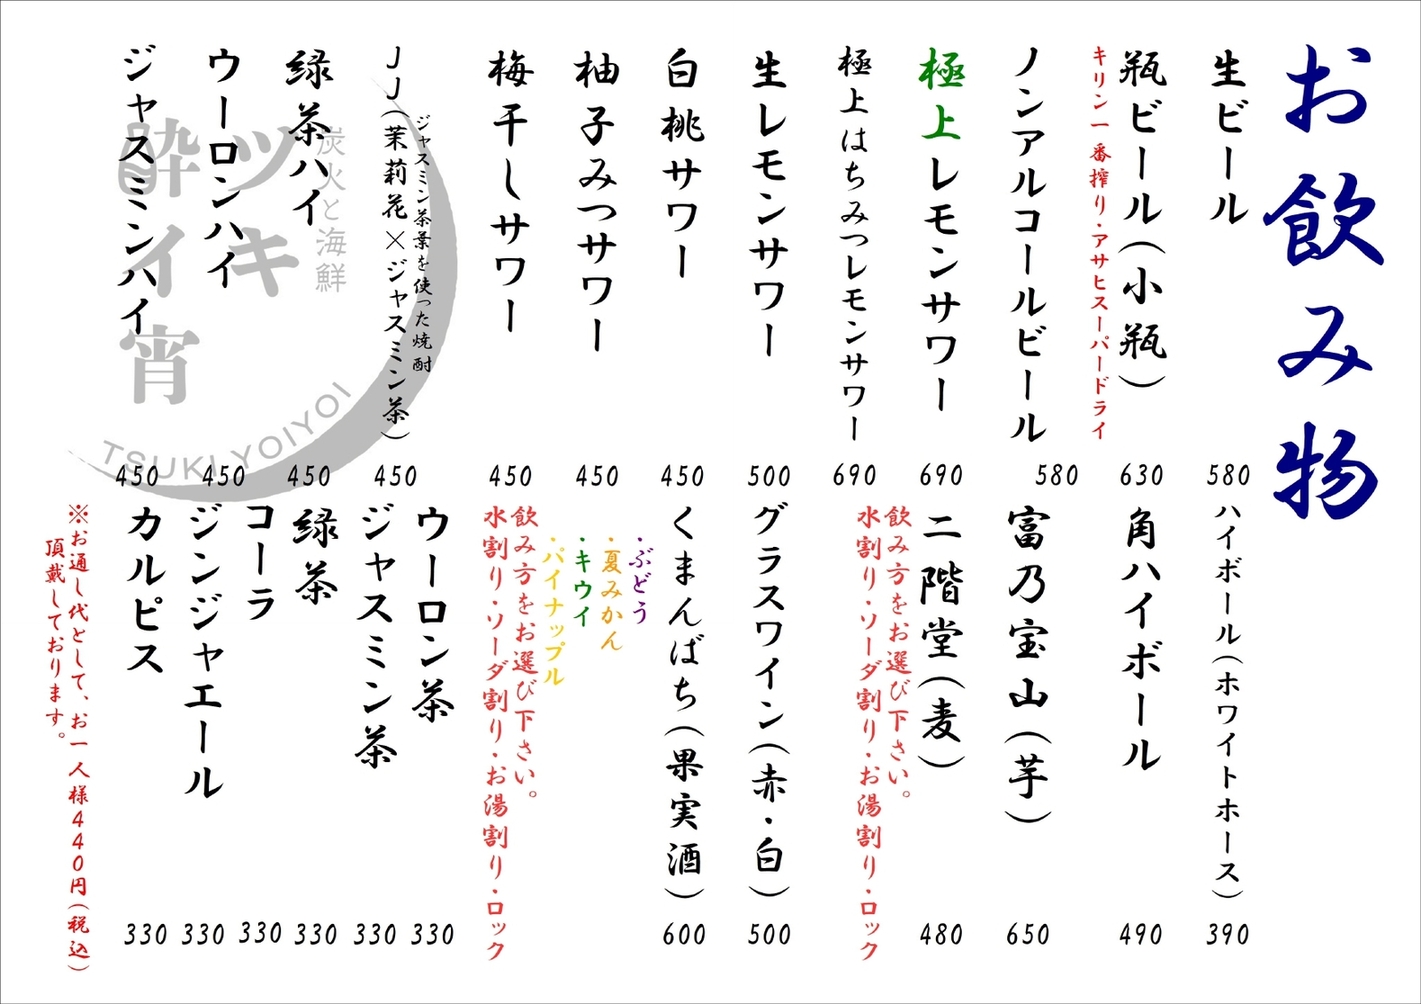 お飲み物
生ビール
580
瓶ビール（小瓶）
キリン一番搾り・アサヒスーパードライ
630
ノンアルコールビール
580
極上レモンサワー
690
極上はちみつレモンサワー
690
生レモンサワー
500
白桃サワー
450
柚子みつサワー
450
梅干しサワー
450
ジャスミン茶葉を使った焼酎
ＪＪ（茉莉花×ジャスミン茶）
450
緑茶ハイ
450
ウーロンハイ
450
ジャスミンハイ
450
炭火と海鮮
ツキ
酔イ宵
TSUKI YOIYOI
ハイボール（ホワイトホース）
390
角ハイボール
490
富乃宝山（芋）
650
二階堂（麦）
480
飲み方をお選び下さい。
水割り・ソーダ割り・お湯割り・ロック
グラスワイン（赤・白）
500
くまんばち（果実酒）
600
・ぶどう
・夏みかん
・キウイ
・パイナップル
飲み方をお選び下さい。
水割り・ソーダ割り・お湯割り・ロック
ウーロン茶
330
ジャスミン茶
330
緑茶
330
コーラ
330
ジンジャエール
330
カルピス
330
※お通し代として、お一人様４４０円（税込）
頂戴しております。